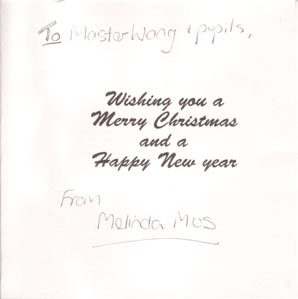 To Master Wong + pupils,
Wishing you a
Merry Christmas
and a
Happy New year
From
Melinda Mos